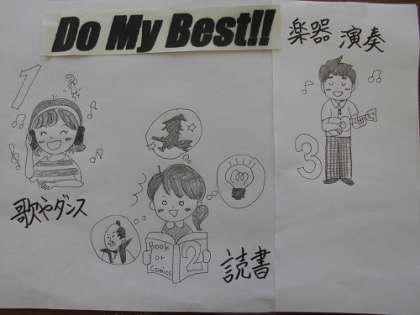 Do My Best!!
楽器演奏
1
歌やダンス
3
Book
or
Comics
2
読書